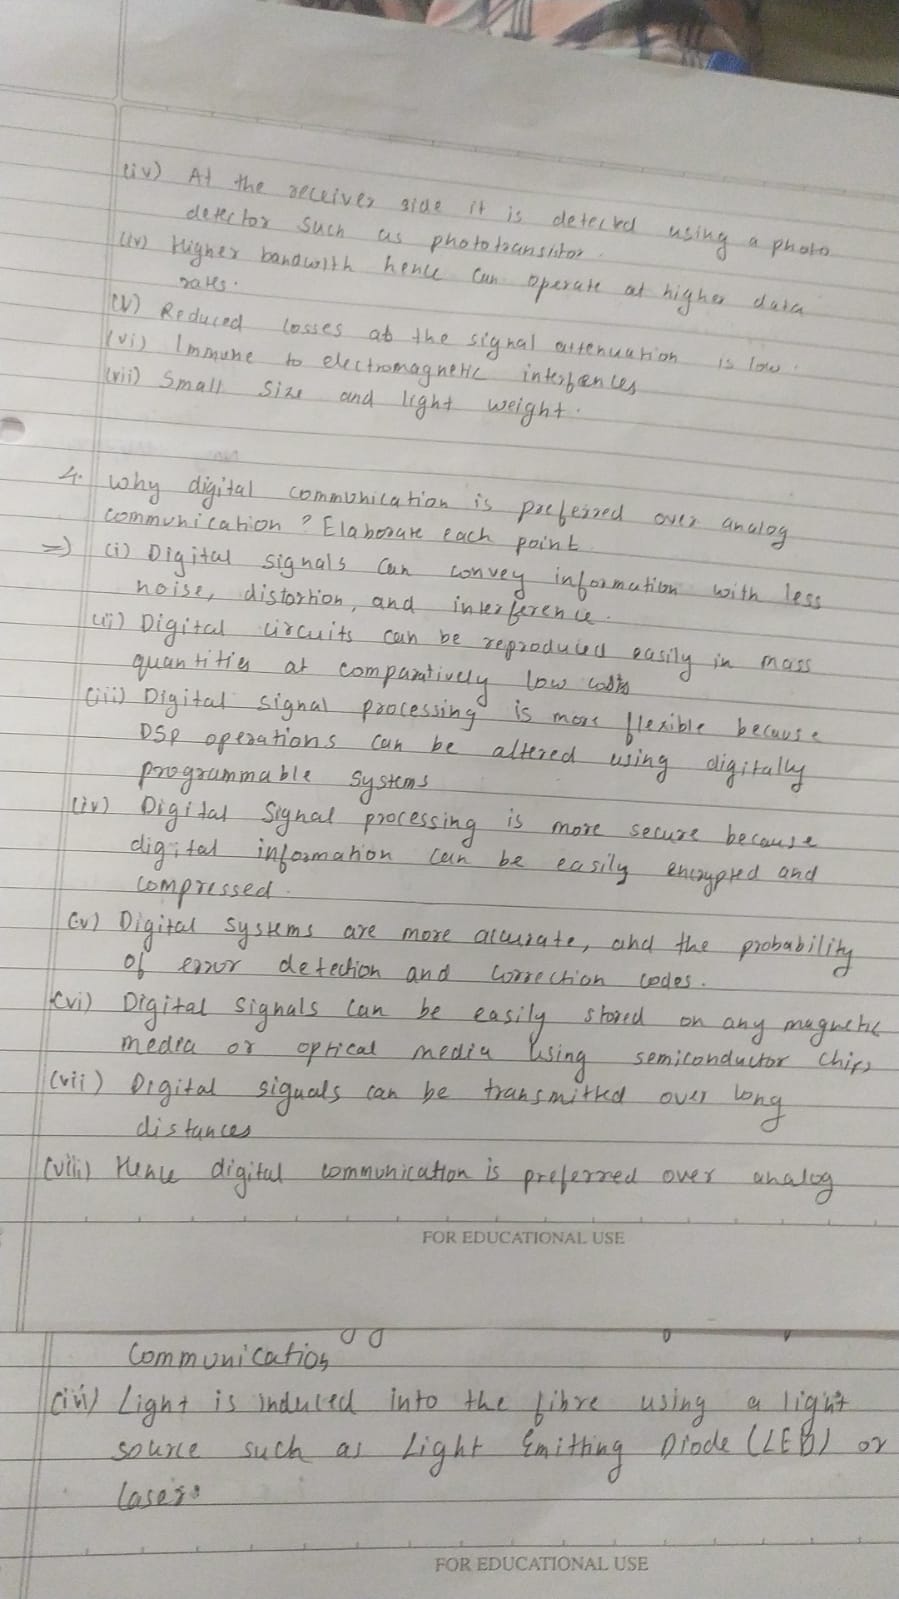 (iv) At the receiver side it is detected using a photo
detector such as phototransistor.
(iv) Higher bandwith hence can operate at higher data
rates.
(v) Reduced losses as the signal attenuation is low.
(vi) Immune to electromagnetic
(vii) Small size and light weight.
4. Why digital communication is preferred over analog
communication? Elaborate each point.
=> (i) Digital signals can convey information with less
noise, distortion, and interference.
(ii) Digital circuits can be reproduced easily in mass
quantities at comparatively low costs
(iii) Digital signal processing is more flexible because
DSP operations can be altered using digitally
programmable systems
(iv) Digital signal processing is more secure because
digital information can be easily encrypted and
compressed.
(v) Digital systems are more accurate, and the probability
of error detection and correction codes.
(vi) Digital signals can be easily stored on any magnetic
media or optical media using semiconductor chips
(vii) Digital signals can be transmitted over long
distances
(viii) Hence digital communication is preferred over analog
FOR EDUCATIONAL USE
Communication
Light is induced into the fibre using a light
source such as Light Emitting Diode (LED) or
lasers.
FOR EDUCATIONAL USE